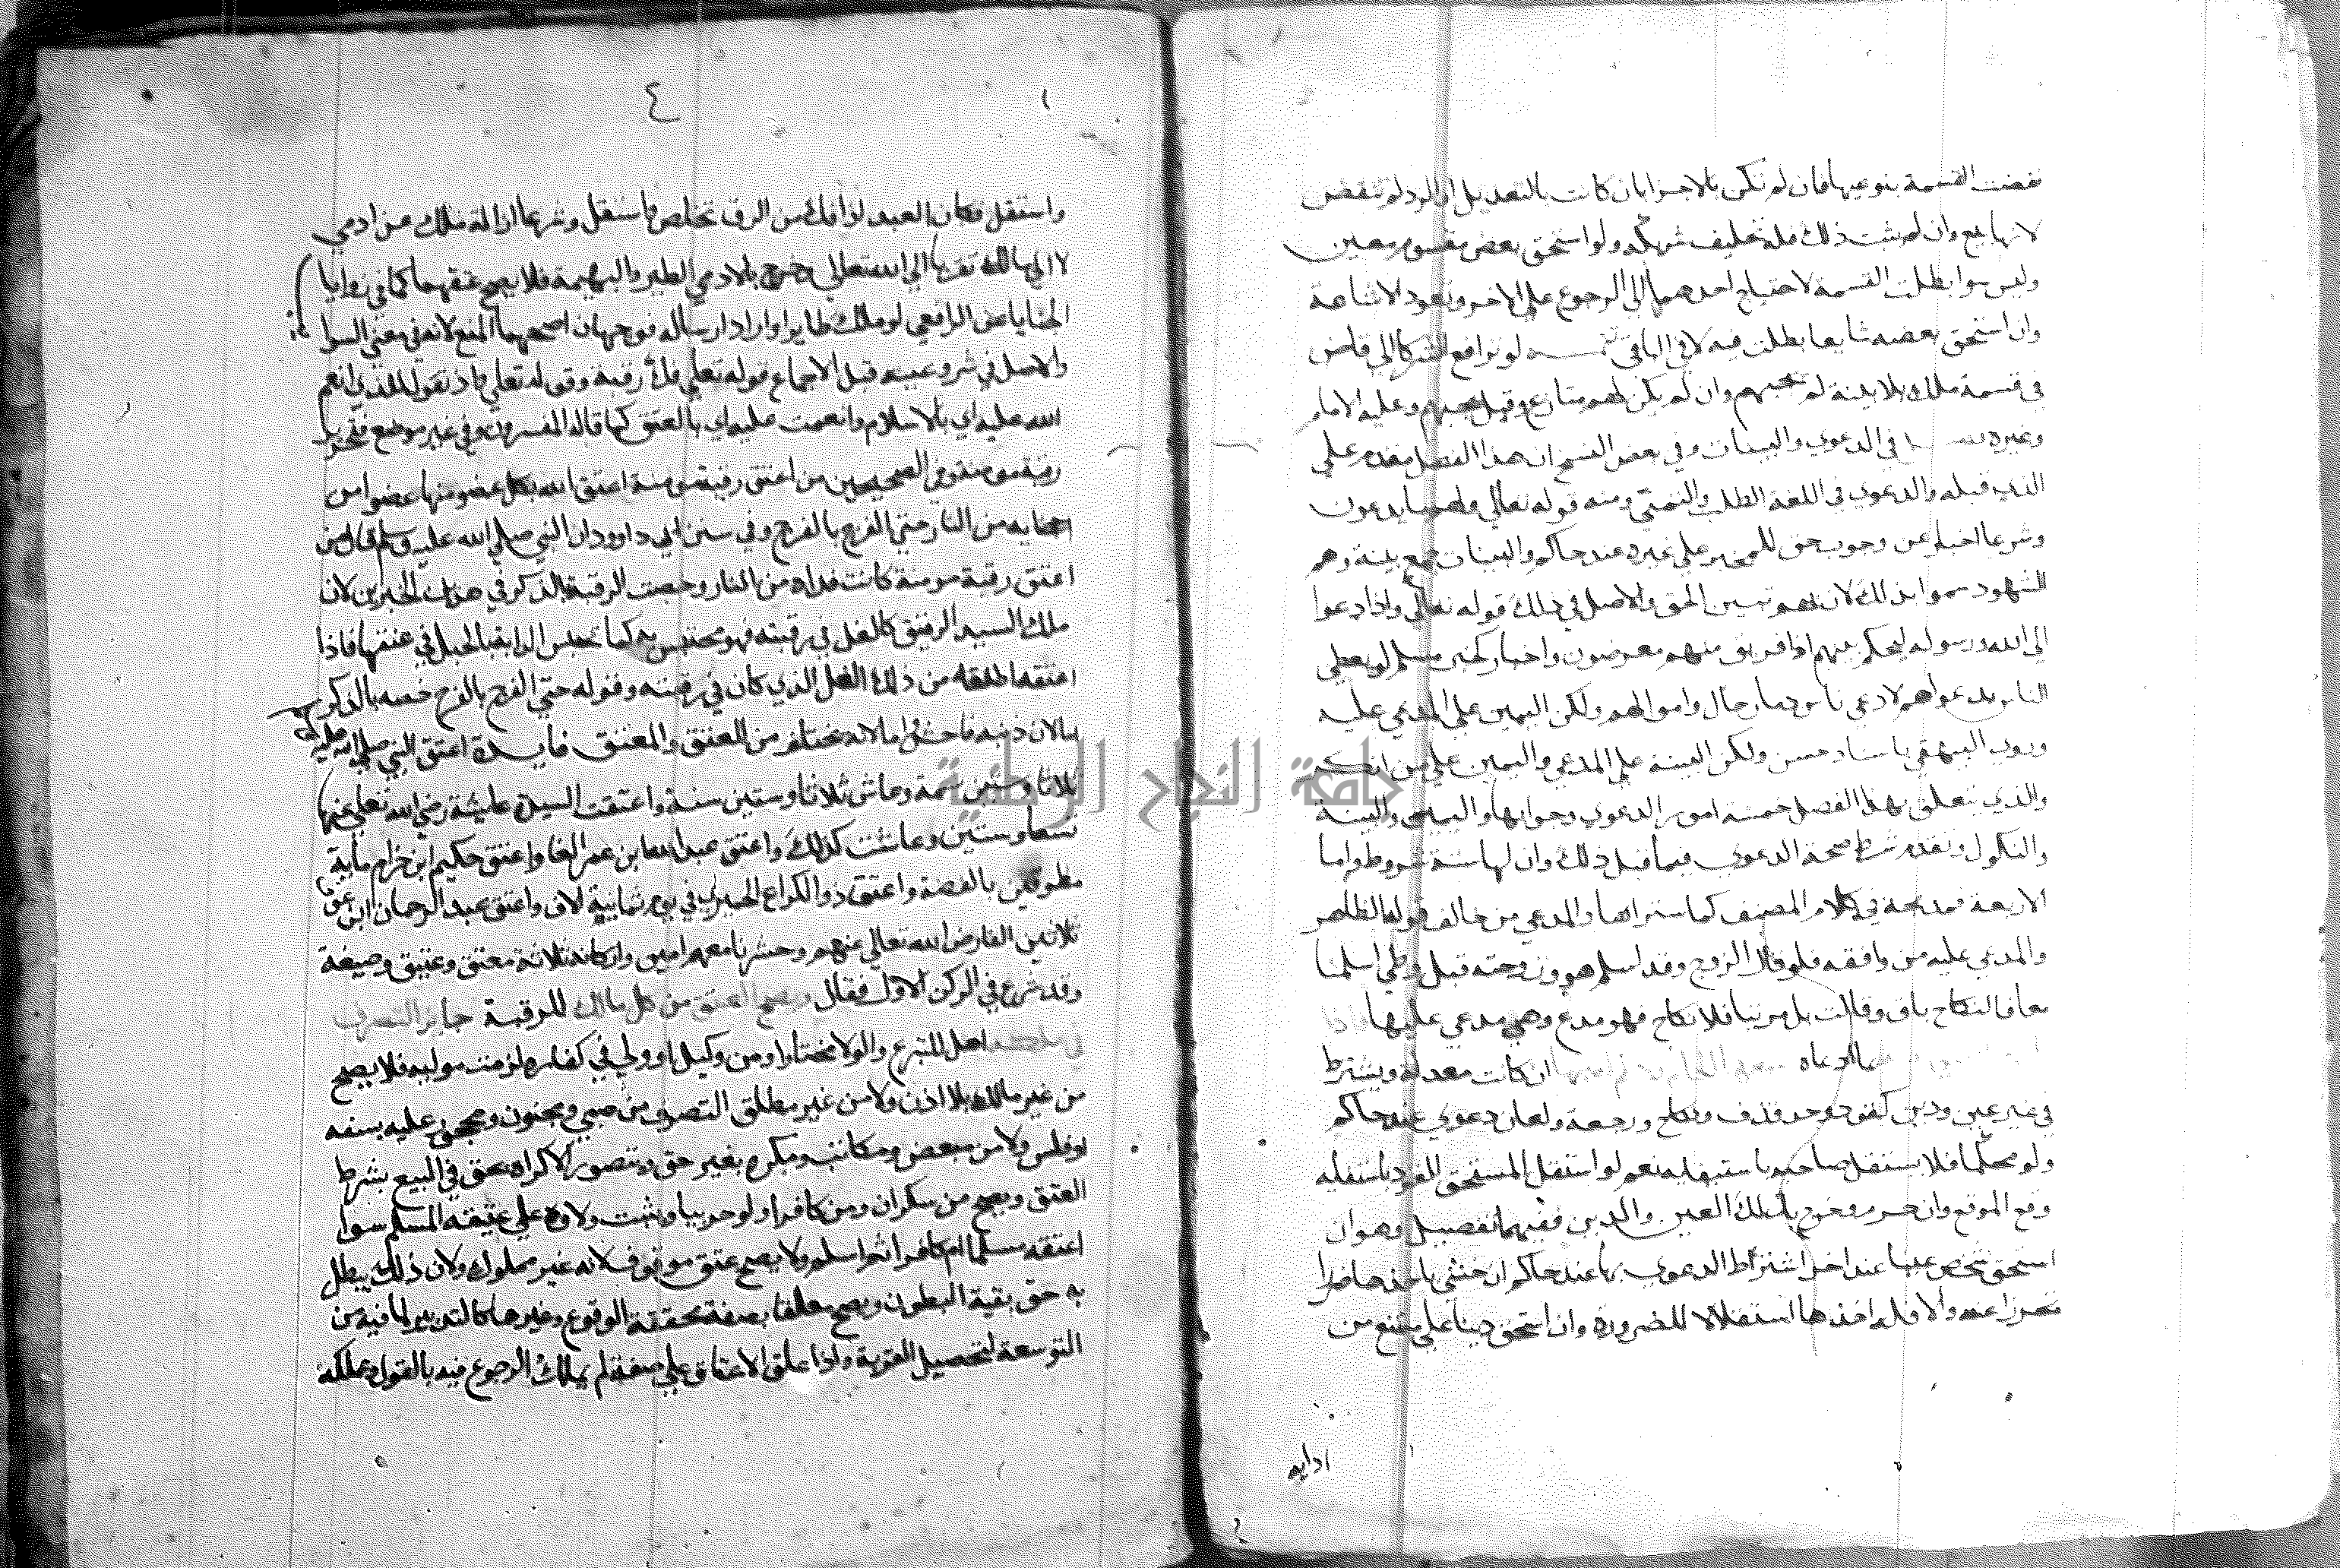 نقضت القسمة بنوعيها فان لم تكن بالاجزا بان كانت بالتعديل او الرد لم تنقض
لانها بيع وان لم يثبت ذلك فله تحليف شريكه ولو استحق بعض مقسوم معين
وليس سوا بطلت القسمة لاحتياج احدهما الي الرجوع علي الاخر وتعود الاشاعة
وان استحق بعضه شايعا بطلت فيه لا في الباقي لو ترافع الشركا الي قاض
في قسمة ملك بلا بينة لم يجبهم وان لم يكن لهم منازع وقيل يجبهم وعليه الامام
وغيره في الدعوي والبينات وفي بعض النسخ ان هذا الفصل مقدم علي
الذي قبله والدعوي في اللغة الطلب والتمني ومنه قوله تعالي ولهم ما يدعون
وشرعا اخبار عن وجوب حق للمخبر علي غيره عند حاكم والبينات جمع بينة وهم
الشهود سموا بذلك لان بهم تبيين الحق والاصل في ذلك قوله تعالي واذا دعوا
الي الله ورسوله ليحكم بينهم اذا فريق منهم معرضون واخبار كخبر مسلم لو يعطي
الناس بدعواهم لادعي ناس دما رجال واموالهم ولكن اليمين علي المدعي عليه
وروي البيهقي باسناد حسن ولكن البينة علي المدعي واليمين علي من انكر
والذي يتعلق بهذا الفصل خمسة امور الدعوي وجوابها واليمين والبينة
والنكول وتقدم شرط صحة الدعوي فيما قبل ذلك وان لها ستة شروط واما
الاربعة فمدرجة في كلام المصنف كما ستراها والمدعي من خالف قوله الظاهر
والمدعي عليه من وافقه فلو قال الزوج وقد اسلم هو وزوجته قبل وطي اسلمنا
معا فالنكاح باق وقالت بل مرتبا فلا نكاح فهو مدع وهي مدعي عليها
ما ادعاه ان كانت معدلة ويشترط
في غير عين ودين كقود وحد قذف ونكاح ورجعة ولعان دعوي عند حاكم
ولو محكما فلا يستقل صاحبه باستيفايه نعم لو استقل المستحق للقود باستيفايه
وقع الموقع وان حرم وخرج بذلك العين والدين ففيهما تفصيل وهو ان
استحق شخص عينا عند اخر اشترط الدعوي بها عند حاكم ان خشي باخذها ضررا
تحرزا عنه والا فله اخذها استقلالا للضرورة وان استحق دينا علي ممتنع من
ادايه
٤
واستقل فكان العبد اذا فك من الرق تخلص واستقل وشرعا ازالة ملك عن ادمي
لا الي مالك تقربا الي الله تعالي وخرج بالادمي الطير والبهيمة فلا يصح عتقهما كما في زوايا
الخبايا عن الرافعي لو ملك طايرا واراد ارساله فوجهان اصحهما المنع لانه في معني السوا
يب
والاصل في مشروعيته قبل الاجماع قوله تعلي فك رقبة وقوله تعلي واذ تقول للذي انعم
الله عليه اي بالاسلام وانعمت عليه اي بالعتق كما قاله المفسرون وفي غير موضع فتحرير
رقبة مومنة وفي الصحيحين من اعتق رقبة مومنة اعتق الله بكل عضو منها عضوا من
اعضايه من النار حتي الفرج بالفرج وفي سنن ابي داوود ان النبي صلي الله عليه وسلم قال من
اعتق رقبة مومنة كانت فداه من النار وخصت الرقبة بالذكر في هذين الخبرين لان
ملك السيد الرقيق كالغل في رقبته فهو محتبس به كما تحبس الدابة بالحبل في عنقها فاذا
اعتقه اطلقه من ذلك الغل الذي كان في رقبته وقوله حتي الفرج بالفرج خصه بالذكر
فايدة اعتق النبي صلي الله عليه
ثلاثا وستين نسمة وعاش ثلاثا وستين سنة واعتقت السيدة عايشة رضي الله تعلي عنها
تسعا وستين وعاشت كذلك واعتق عبد الله بن عمر الفا واعتق حكيم ابن حزام ماية
مطوقين بالفضة واعتق ذو الكراع الحميري في يوم ثمانية الاف واعتق عبد الرحمان ابن عوف
ثلاثين الفا رض الله تعالي عنهم وحشرنا معهم امين واركانه ثلاثة معتق وعتيق وصيغة
وقد شرع في الركن الاول فقال ويصح العتق من كل مالك للرقبة جايز التصرف
في ملكه اهل للتبرع والولا مختارا ومن وكيل او ولي في كفارة لزمت موليه فلا يصح
من غير مالك بلا اذن ولا من غير مطلق التصرف من صبي ومجنون ومحجور عليه بسفه
او فلس ولا من مبعض ومكاتب ومكره بغير حق ويتصور الاكراه بحق في البيع بشرط
العتق ويصح من سكران ومن كافر ولو حربيا ويثبت ولاوه علي عتيقه المسلم سوا
اعتقه مسلما ام كافرا ثم اسلم ولا يصح عتق موقوف لانه غير مملوك ولان ذلك يبطل
به حق بقية البطون ويصح معلقا بصفة محققة الوقوع وغيرها كالتدبير لما فيه من
التوسعة لتحصيل القربة واذا علق الاعتاق علي صفة لم يملك الرجوع فيه بالقول ويملكه
جامعة النجاح الوطنية